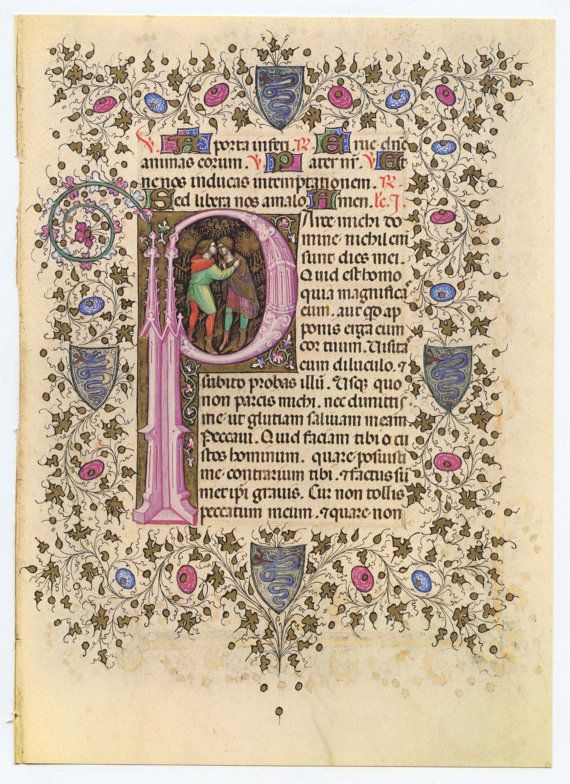 V. A porta inferi. R. Erue dñe
animas corum. V. Pater nr̃. V. Et
ne nos inducas intemptationem. R.
Sed libera nos amalo. Amen. lc. I.
Parce michi do
mine nichil eni
sunt dies mei.
Quid est homo
quia magnifica
eum. aut qd ap
ponis erga eum
cor tuum. Uisita
eum diluculo. &
subito probas illū. Usqȝ quo
non parcis michi. nec dimittis
me ut glutiam saliuam meam.
Peccaui. Quid faciam tibi o cu
stos hominum. quare posuisti
me contrarium tibi. & factus sū
metipi grauis. Cur non tollis
peccatum meum. & quare non